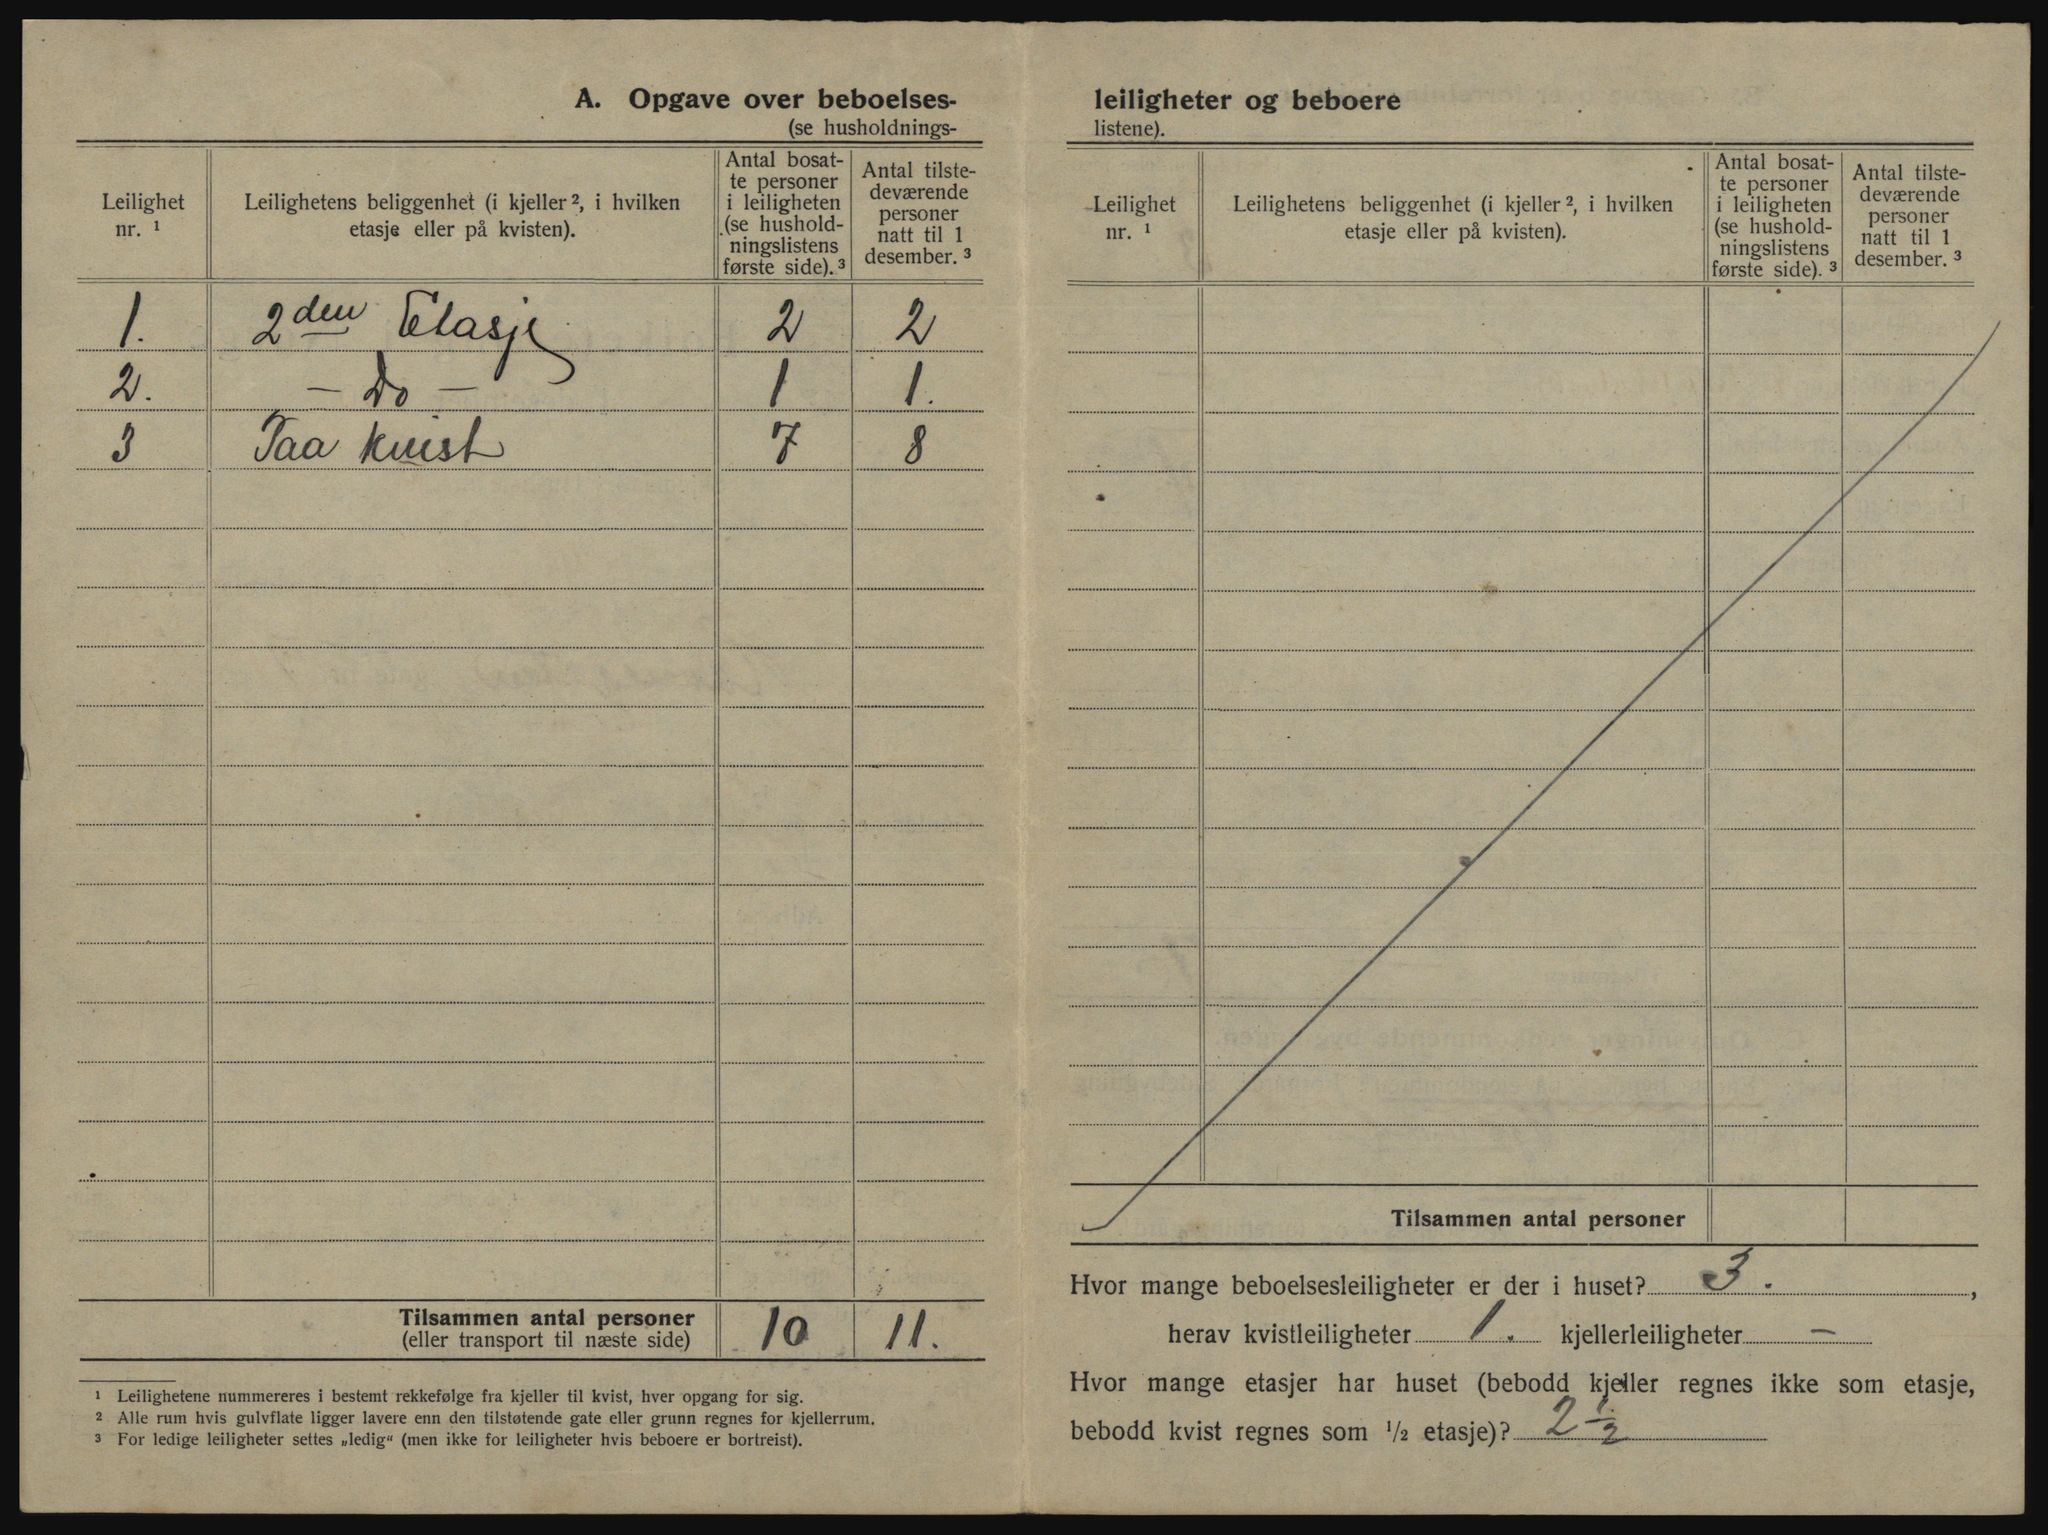 A. Opgave over beboelses-
(se husholdnings-
Leilighet nr. ¹
Leilighetens beliggenhet (i kjeller ², i hvilken etasje eller på kvisten).
Antal bosat-
te personer
i leiligheten
(se hushold-
ningslistens
første side). ³
Antal tilste-
deværende
personer
natt til 1
desember. ³
1. 2den Etasje 2 2
2. — Do — 1 1.
3 Paa kvist 7 8
Tilsammen antal personer 10 11.
(eller transport til næste side)
¹ Leilighetene nummereres i bestemt rekkefølge fra kjeller til kvist, hver opgang for sig.
² Alle rum hvis gulvflate ligger lavere enn den tilstøtende gate eller grunn regnes for kjellerrum.
³ For ledige leiligheter settes „ledig“ (men ikke for leiligheter hvis beboere er bortreist).
leiligheter og beboere
listene).
Leilighet nr. ¹
Leilighetens beliggenhet (i kjeller ², i hvilken etasje eller på kvisten).
Antal bosat-
te personer
i leiligheten
(se hushold-
ningslistens
første side). ³
Antal tilste-
deværende
personer
natt til 1
desember. ³
Tilsammen antal personer
Hvor mange beboelsesleiligheter er der i huset? 3. ,
herav kvistleiligheter 1. kjellerleiligheter —
Hvor mange etasjer har huset (bebodd kjeller regnes ikke som etasje,
bebodd kvist regnes som ½ etasje)? 2 ½